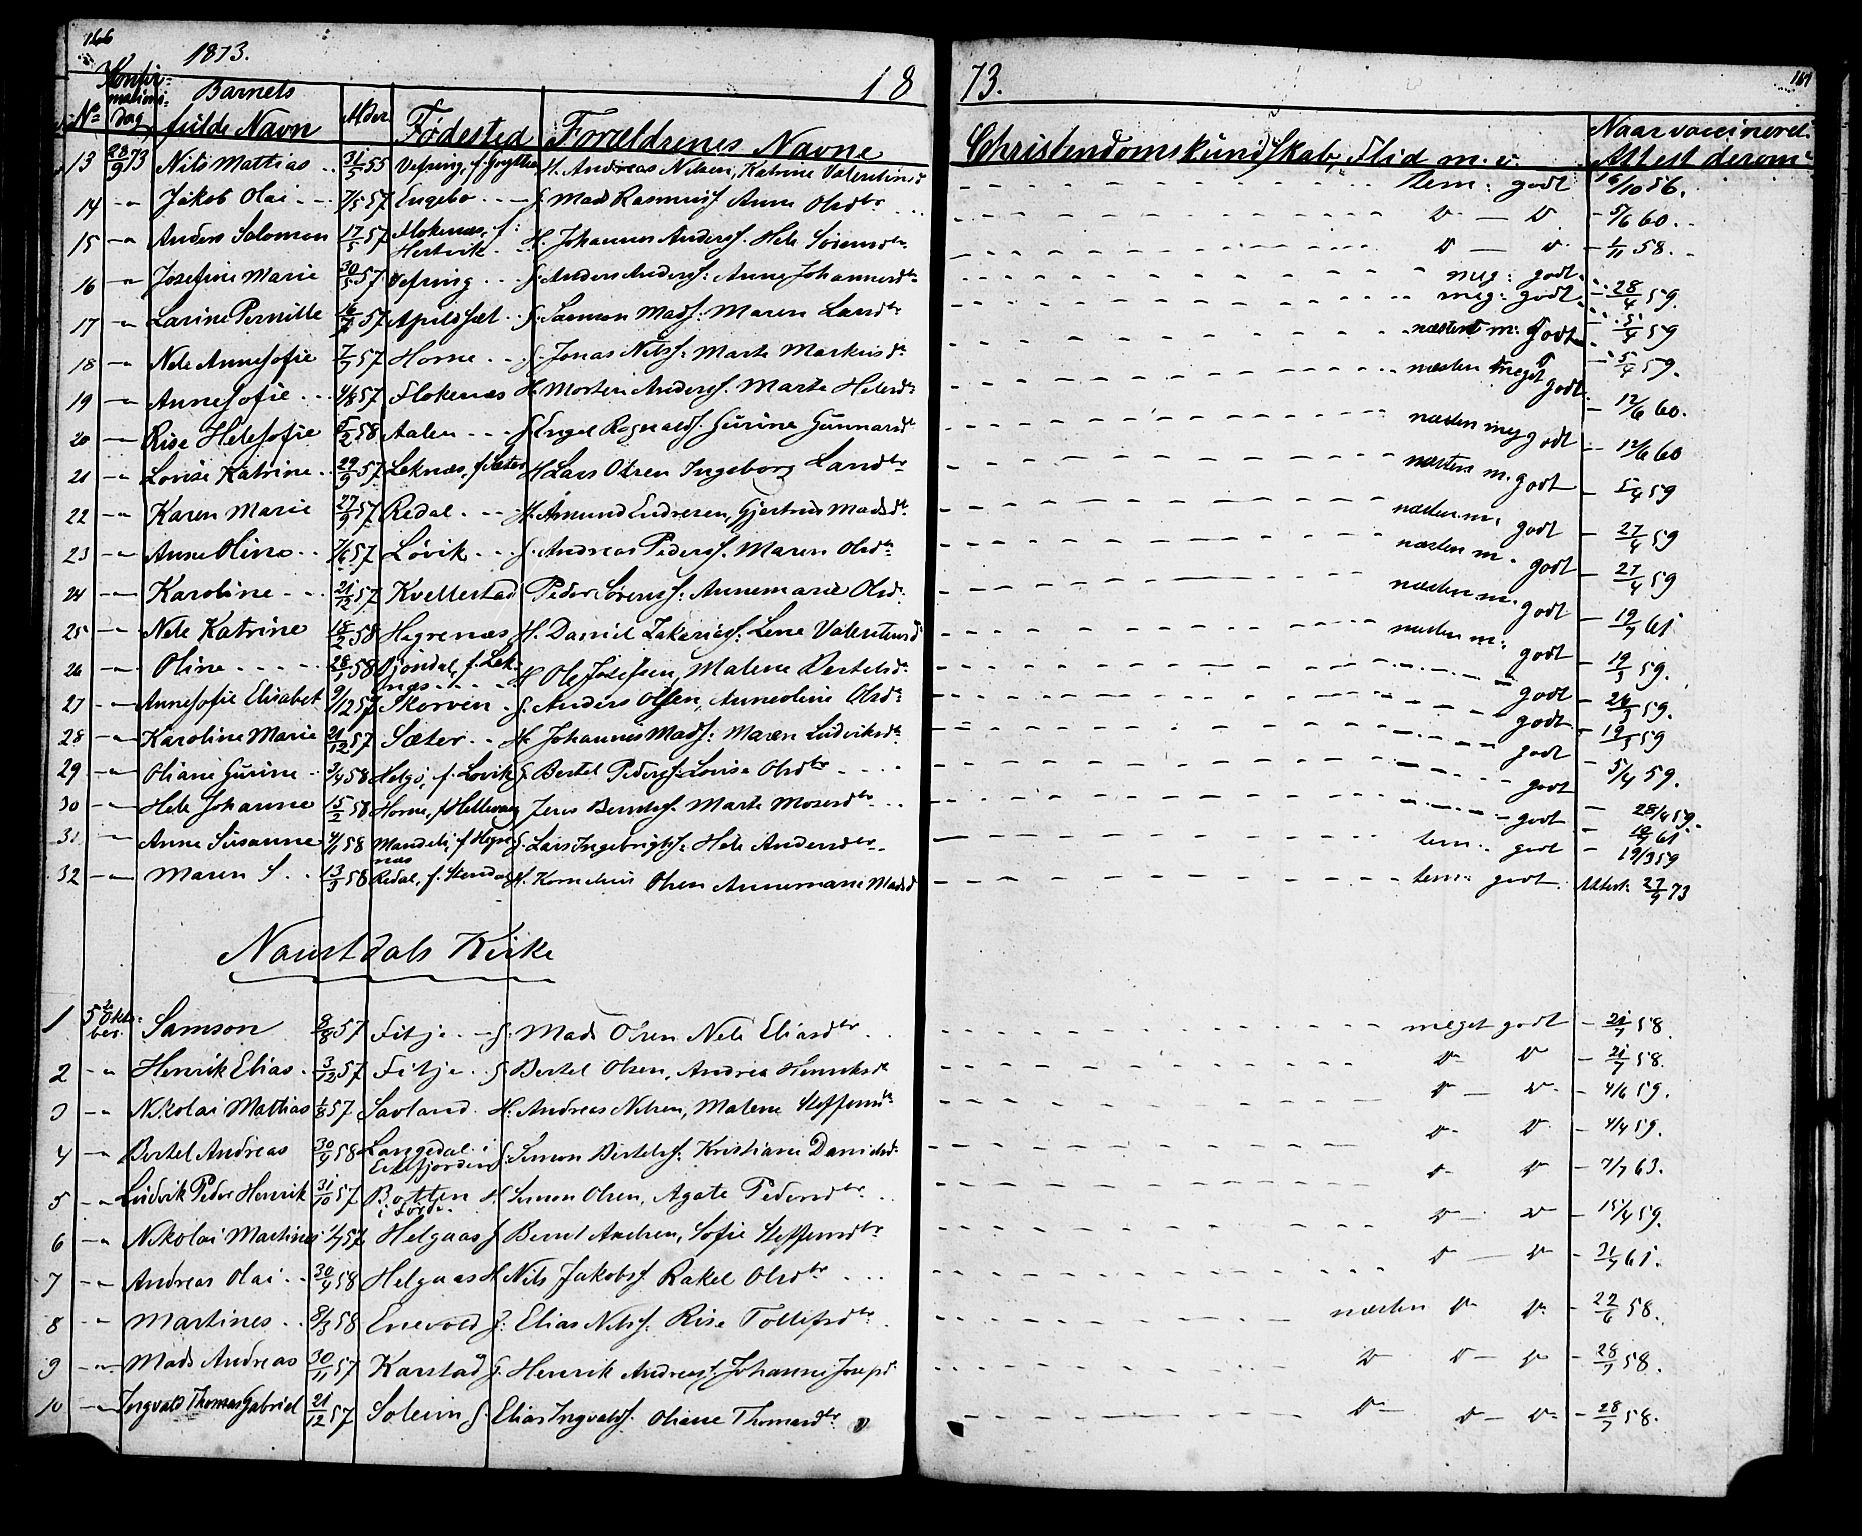 166
1873.
18
73.
167
No Konfirmations-dag Barnets fulde Navn Alder Fødested Forældrenes Navne Christendomskundskab, Flid m. v. Naar vaccineret. Attest derom
13 28/9 73 Nils Mattias 31/5 55 Vefring, f. H. Andreas Nilsen, Katrine Valentinsd tem: godt 16/10 56.
14 -"- Jakob Olai 7/5 57 Engebø G. Mads Rasmusf. Anne Olsdtr D — D 5/6 60.
15 -"- Anders Salomon 17/5 57 Flokenæs, f: Hestvik H. Johannes Andersf. Hele Sørensdtr D — D 1/11 58.
16 -"- Josefine Marie 30/5 57 Vefring G. Anders Andersf: Anne Johannesdtr meg: godt 28/4 59.
17 -"- Larine Pernille 57 Apeldsæt G. Samson Madsf. Maren Larsdtr meg: godt 5/4 59
18 -"- Nele Annesofie 7/7 57 Horne G. Jonas Nilsf: Marte Markusdr næsten m: godt 5/4 59.
19 -"- Annesofie 4/8 57 Flokenæs H. Morten Andersf. Marte Helesdr næsten meget godt 12/6 60.
20 -"- Rise Helesofie 5/2 58 Aalen G. Engel Rognaldsf. Gurine Gunnarsdr næsten meg godt 12/6 60
21 -"- Lovise Katrine 29/9 57 Leknæs, f. Sæter H. Lars Olsen Ingeborg Larsdtr næsten m. godt 5/4 59
22 -"- Karen Marie 27/9 57 Redal H. Amund Endresen, Gjertrud Madsdr næsten m: godt 27/4 59
23 -"- Anne Oline 7/6 57 Løvik G. Andreas Pedersf. Maren Olsdtr næsten m. godt 27/4 59
24 -"- Karoline 21/12 57 Kvellestad Peder Sørensf: Annemarie Olsdr næsten m. godt 19/7 61
25 -"- Nele Katrine 18/2 58 Hegrenæs H. Daniel Zakariasf. Lene Valentinsd næsten m: godt 19/3 59.
26 -"- Oline 28/1 58 Gjøndal, f. Leknæs H Ole Josefsen, Malene Bertelsdr godt 26/3 59.
27 -"- Annesofie Elisabet 9/12 57 Skorven G. Anders Olsen, Anneoline Olsdr godt 19/3 59
28 -"- Karoline Marie 21/12 57 Sæter H. Johannes Madsf: Maren Ludviksdr godt 5/4 59.
29 -"- Oliane Gurine 3/4 58 Helgø, f. Løvik G Bertel Pedersf. Lovise Olsdtr godt 28/4 59.
30 -"- Hele Johanne 15/2 58 Horne, f Hellevang Jens Berntsf. Marte Mosesdtr godt 61
31 -"- Anne Susanne 4/1 58 f Hegrenæs G. Lars Ingebrigtsf: Hele Andersdtr tem: godt 19/3 59
32 -"- Maren S. 13/3 58 Redal, f. H. Kornelius Olsen Annemarie Madsd tem: godt Attest: 27/9 73
Naustdals Kirke
1 5te Oktober Samson 9/8 57 Fitje G. Mads Olsen Nele Eliasdtr meget godt 21/7 58.
2 -"- Henrik Elias 3/12 57 Fitje G Bertel Olsen, Andrea Henriksdr D D 21/7 58.
3 -"- Nikolai Mattias 1/8 57 Savland H. Andreas Nilsen, Malene Steffensdr D — D 4/6 59.
4 -"- Bertel Andreas 30/9 58 Langedal i Eidsfjorden G. Simon Bertelsf: Kristiane Danielsdr D D 4/4 59.
5 -"- Ludvik Peder Henrik 31/10 57 Botten i Førde H. Simon Olsen, Agate Pedersdtr D D 7/7 63.
6 -"- Nikolai Martines 1/7 57 Helgaas G Bernt Andersen, Sofie Steffensdtr D — D 15/4 59.
7 -"- Andreas Olai 30/4 58 Helgaas H. Nils Jakobsf. Rakel Olsdtr D — D 21/7 61.
8 -"- Martines 8/3 58 Enevold G: Elias Nilsf: Rise Tollefsdtr næsten D D 22/6 58.
9 -"- Mads Andreas 30/11 57 Karstad G. Henrik Andreasf. Johanne Josepsdr D D — D 28/7 58.
10 -"- Ingvald Thomas Gabriel 21/12 57 Soleim G. Elias Ingvaldsf. Oliane Thomasdtr D D — D 28/7 58.